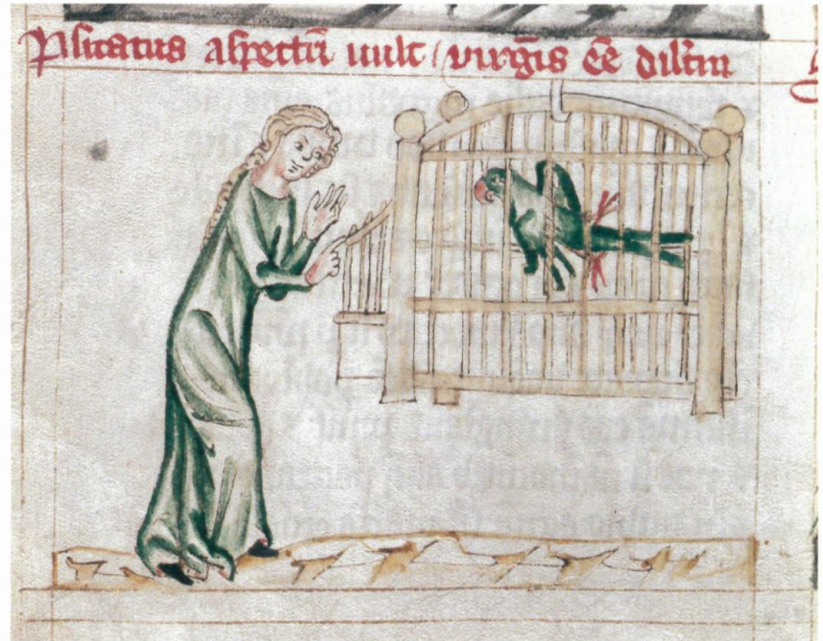 Psitatus aſpectū uult virgīs eē dilc̄tū